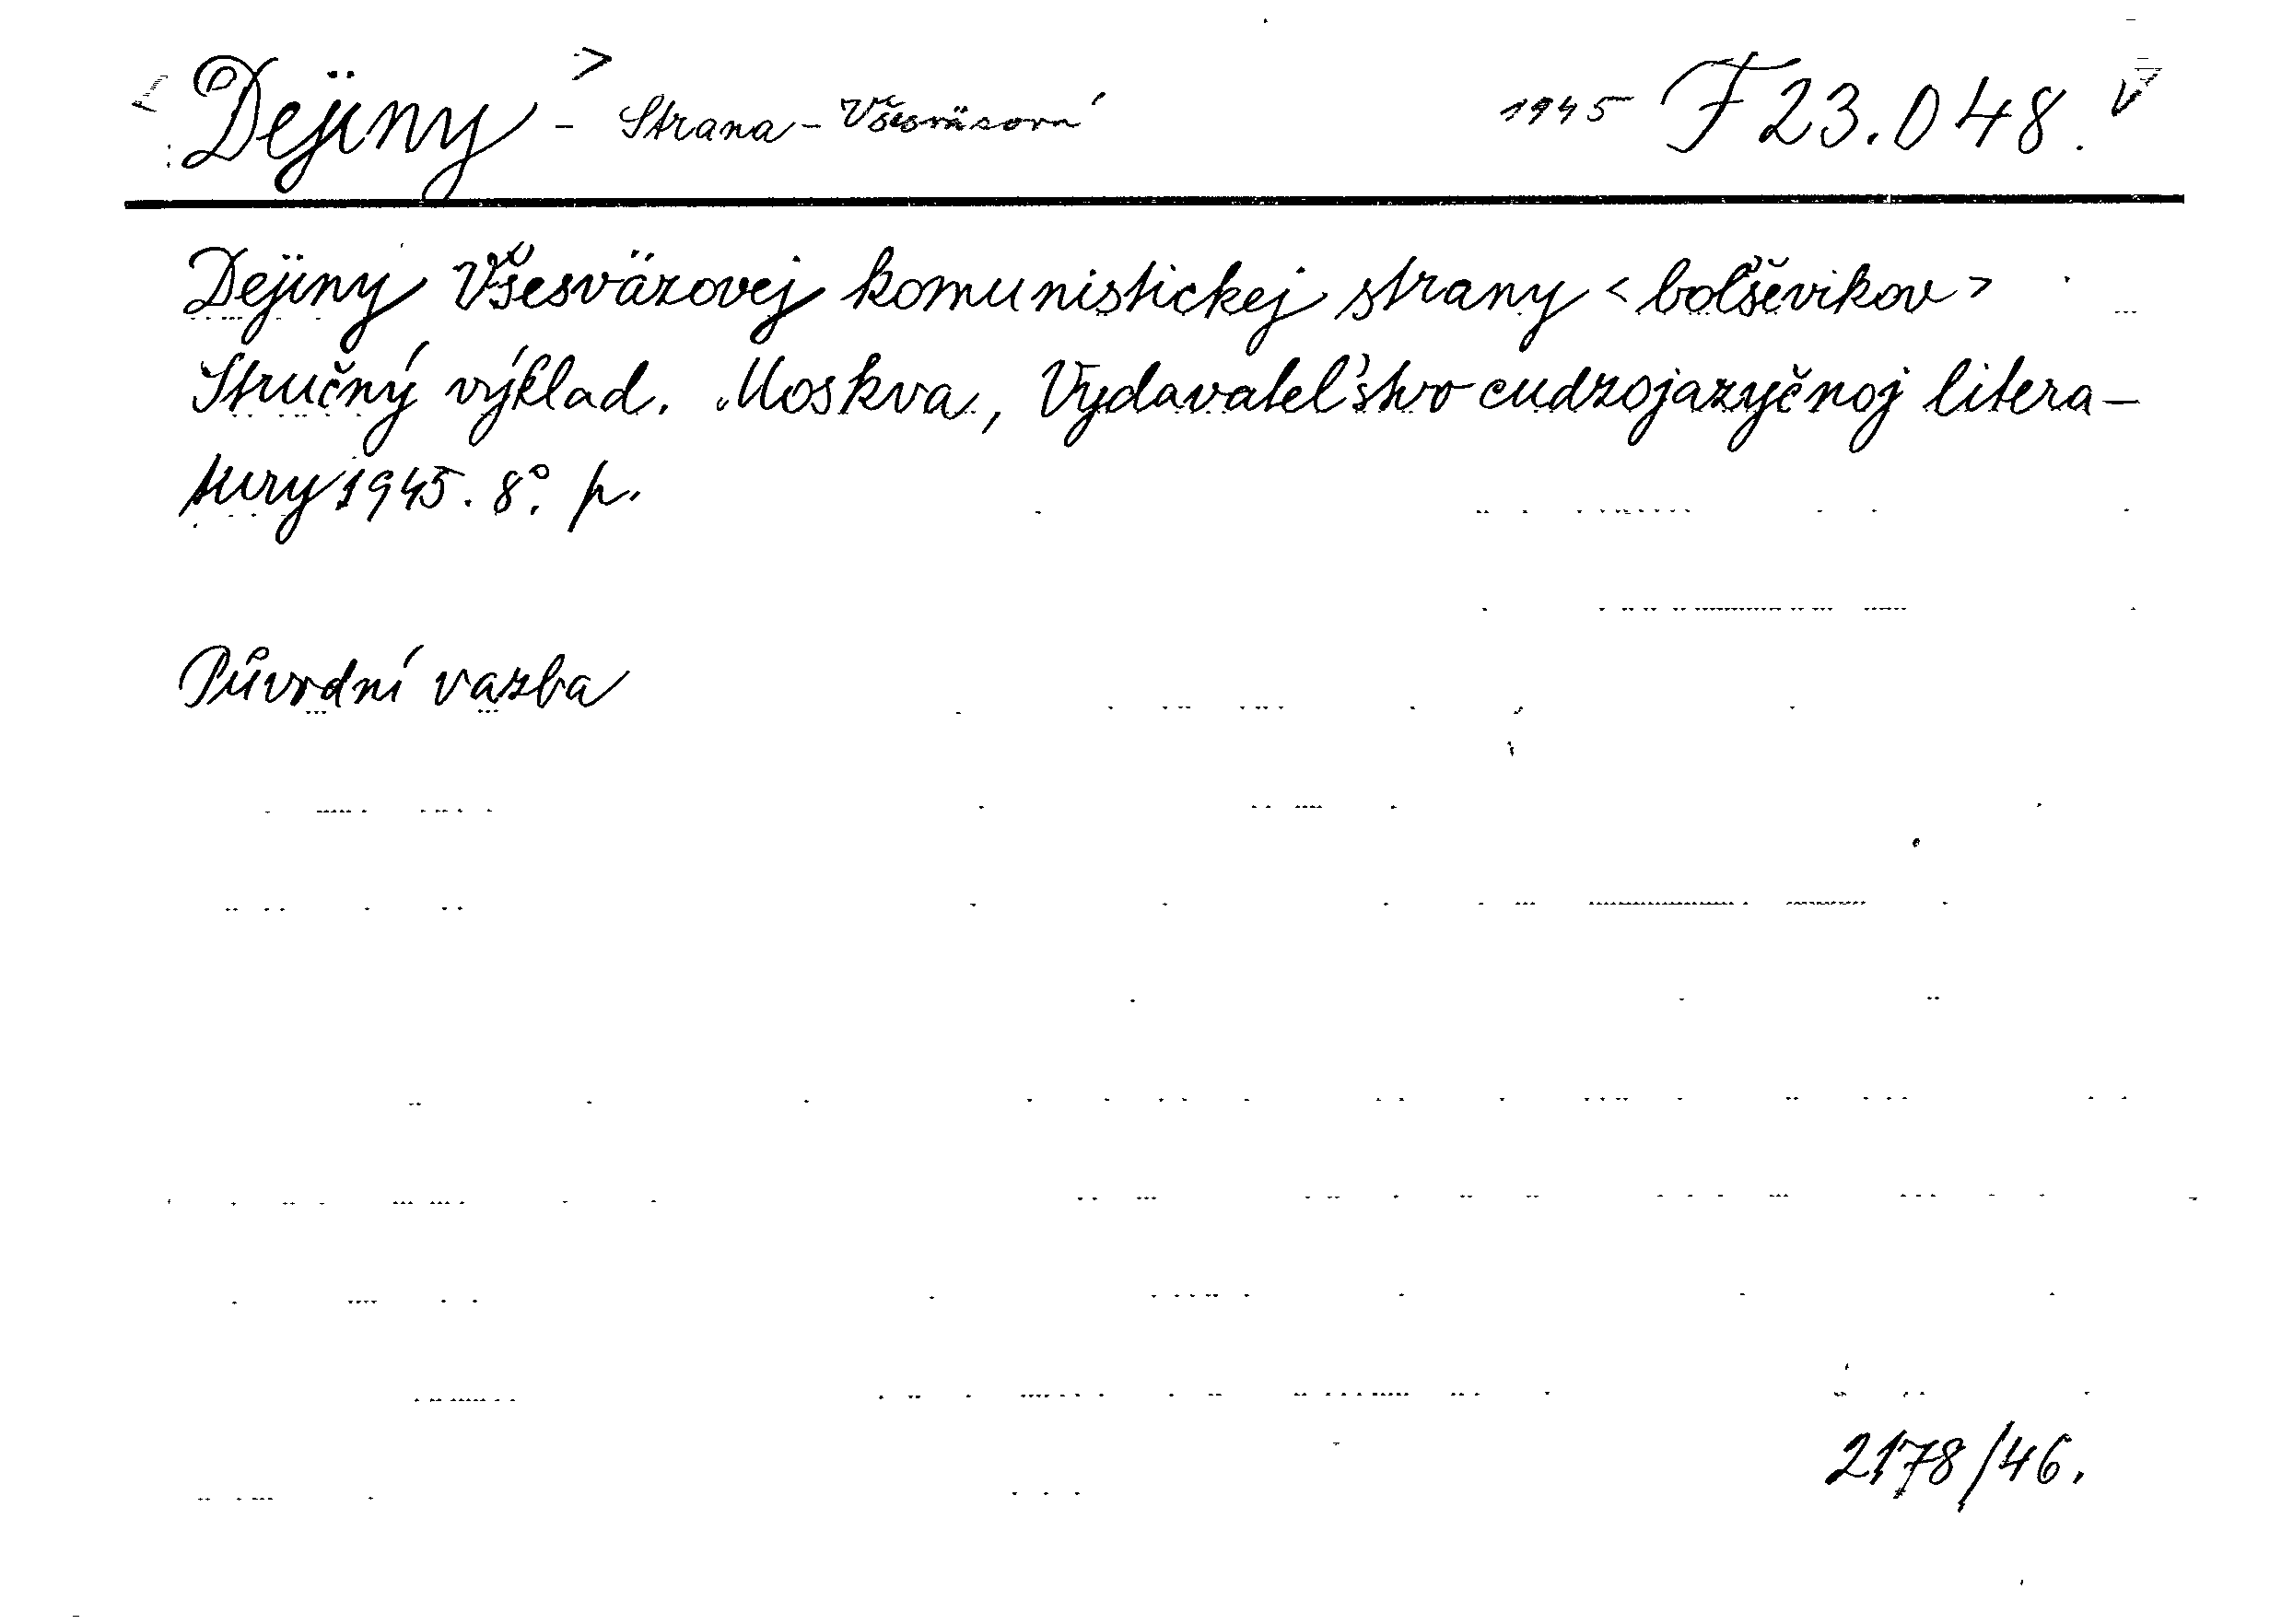 Dejiny - Strana - Všesväzová 1945 F 23.048.
Dejiny Všesväzovej komunistickej strany <boľševikov>
Stručný výklad. Moskva, Vydavateľstvo cudzojazyčnoj litera-
tury 1945. 8°. p.
Původní vazba
2178/46.